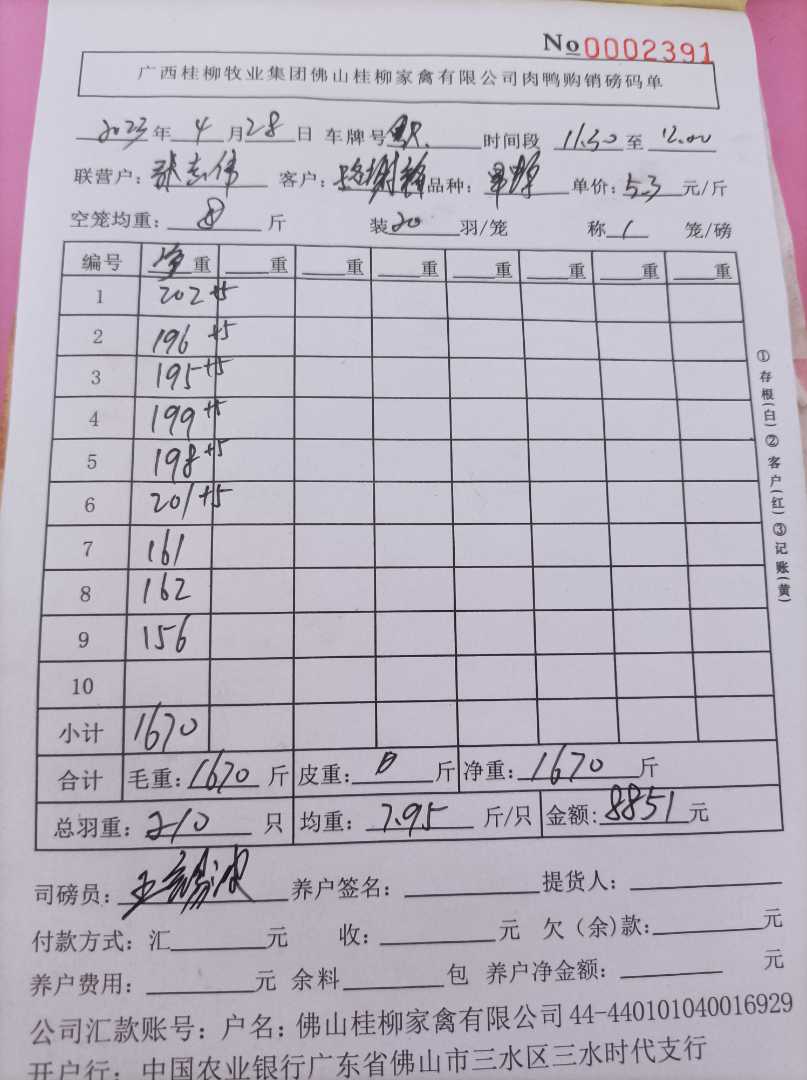 No 0002391
广西桂柳牧业集团佛山桂柳家禽有限公司肉鸭购销磅码单
2023年 4 月 28 日 车牌号 时间段 11.30 至 12.00
联营户：张志伟 客户： 品种： 单价：5.3 元/斤
空笼均重：8 斤 装 20 羽/笼 称 1 笼/磅
编号 净重 重 重 重 重 重 重 重
1 202+5
2 196+5
3 195+5
4 199+5
5 198+5
6 201+5
7 161
8 162
9 156
10
小计 1670
合计 毛重：1670 斤 皮重：0 斤 净重：1670 斤
总羽重：210 只 均重：7.95 斤/只 金额：8851 元
①存根(白)②客户(红)③记账(黄)
司磅员： 养户签名： 提货人：
付款方式：汇 元 收： 元 欠（余）款： 元
养户费用： 元 余料 包 养户净金额： 元
公司汇款账号：户名：佛山桂柳家禽有限公司 44-440101040016929
开户行：中国农业银行广东省佛山市三水区三水时代支行